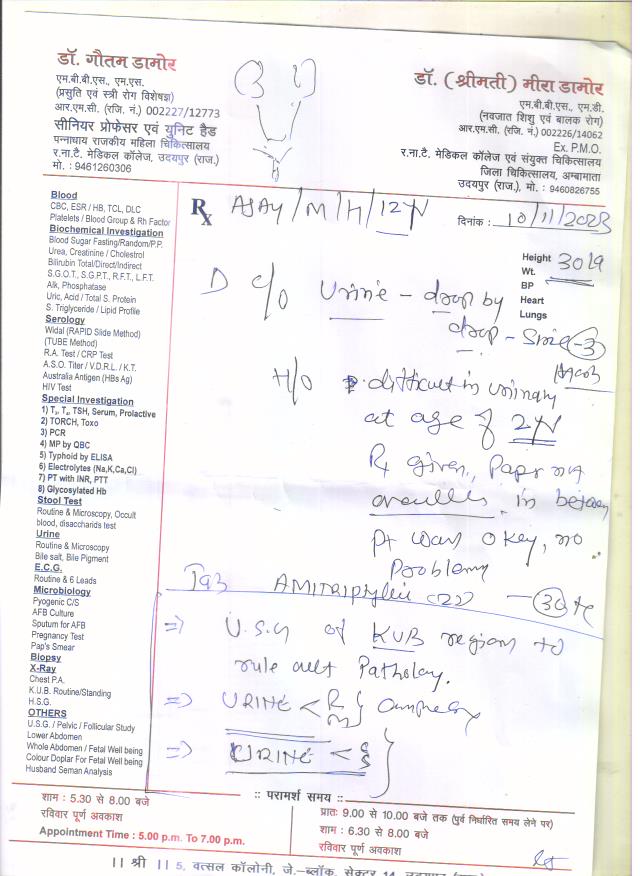 डॉ. गौतम डामोर
एम.बी.बी.एस., एम.एस.
(प्रसुति एवं स्त्री रोग विशेषज्ञ)
आर.एम.सी. (रजि. नं.) 002227/12773
सीनियर प्रोफेसर एवं युनिट हैड
पन्नाधाय राजकीय महिला चिकित्सालय
र.ना.टै. मेडिकल कॉलेज, उदयपुर (राज.)
मो. : 9461260306
डॉ. (श्रीमती) मीरा डामोर
एम.बी.बी.एस., एम.डी.
(नवजात शिशु एवं बालक रोग)
आर.एम.सी. (रजि. नं.) 002226/14062
Ex. P.M.O.
र.ना.टै. मेडिकल कॉलेज एवं संयुक्त चिकित्सालय
जिला चिकित्सालय, अम्बामाता
उदयपुर (राज.), मो. : 9460826755
Blood
CBC, ESR / HB, TCL, DLC
Platelets / Blood Group & Rh Factor
Biochemical Investigation
Blood Sugar Fasting/Random/P.P.
Urea, Creatinine / Cholestrol
Bilirubin Total/Direct/Indirect
S.G.O.T., S.G.P.T., R.F.T., L.F.T.
Alk, Phosphatase
Uric, Acid / Total S. Protein
S. Triglyceride / Lipid Profile
Serology
Widal (RAPID Slide Method)
(TUBE Method)
R.A. Test / CRP Test
A.S.O. Titer / V.D.R.L. / K.T.
Australia Antigen (HBs Ag)
HIV Test
Special Investigation
1) T₃, T₄, TSH, Serum, Prolactive
2) TORCH, Toxo
3) PCR
4) MP by QBC
5) Typhoid by ELISA
6) Electrolytes (Na,K,Ca,Cl)
7) PT with INR, PTT
8) Glycosylated Hb
Stool Test
Routine & Microscopy, Occult
blood, disaccharids test
Urine
Routine & Microscopy
Bile salt, Bile Pigment
E.C.G.
Routine & 6 Leads
Microbiology
Pyogenic C/S
AFB Culture
Sputum for AFB
Pregnancy Test
Pap's Smear
Biopsy
X-Ray
Chest P.A.
K.U.B. Routine/Standing
H.S.G.
OTHERS
U.S.G. / Pelvic / Follicular Study
Lower Abdomen
Whole Abdomen / Fetal Well being
Colour Doplar For Fetal Well being
Husband Seman Analysis
Rx AJAY/M/H/12Y
दिनांक : 10/11/2023
Height
Wt. 30
BP
Heart
Lungs
c/o Urine - drop by
drop - Since - 3
H/O difficult in urinary
at age of 2Y
Rx given, Paper not
in between
pt was okey, no
Problem
Tab AMITRIPtylin
=> U.S.G of KUB region to
rule out Patholoy.
=> URINE < R M }
=> URINE < C S }
:: परामर्श समय ::
शाम : 5.30 से 8.00 बजे
रविवार पूर्ण अवकाश
Appointment Time : 5.00 p.m. To 7.00 p.m.
प्रातः 9.00 से 10.00 बजे तक (पुर्व निर्धारित समय लेने पर)
शाम : 6.30 से 8.00 बजे
रविवार पूर्ण अवकाश
|| श्री || 5, वत्सल कॉलोनी, जे.-ब्लॉक, सेक्टर 14,